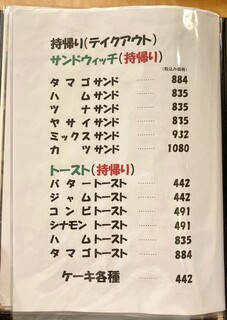 持帰り(テイクアウト)
サンドウィッチ(持帰り)
(税込み価格)
タマゴサンド ……… 884
ハムサンド ……… 835
ツナサンド ……… 835
ヤサイサンド ……… 815
ミックスサンド ……… 932
カツサンド ……… 1080
トースト(持帰り)
バタートースト ……… 442
ジャムトースト ……… 442
コンビトースト ……… 491
シナモントースト ……… 491
ハムトースト ……… 835
タマゴトースト ……… 884
ケーキ各種 442